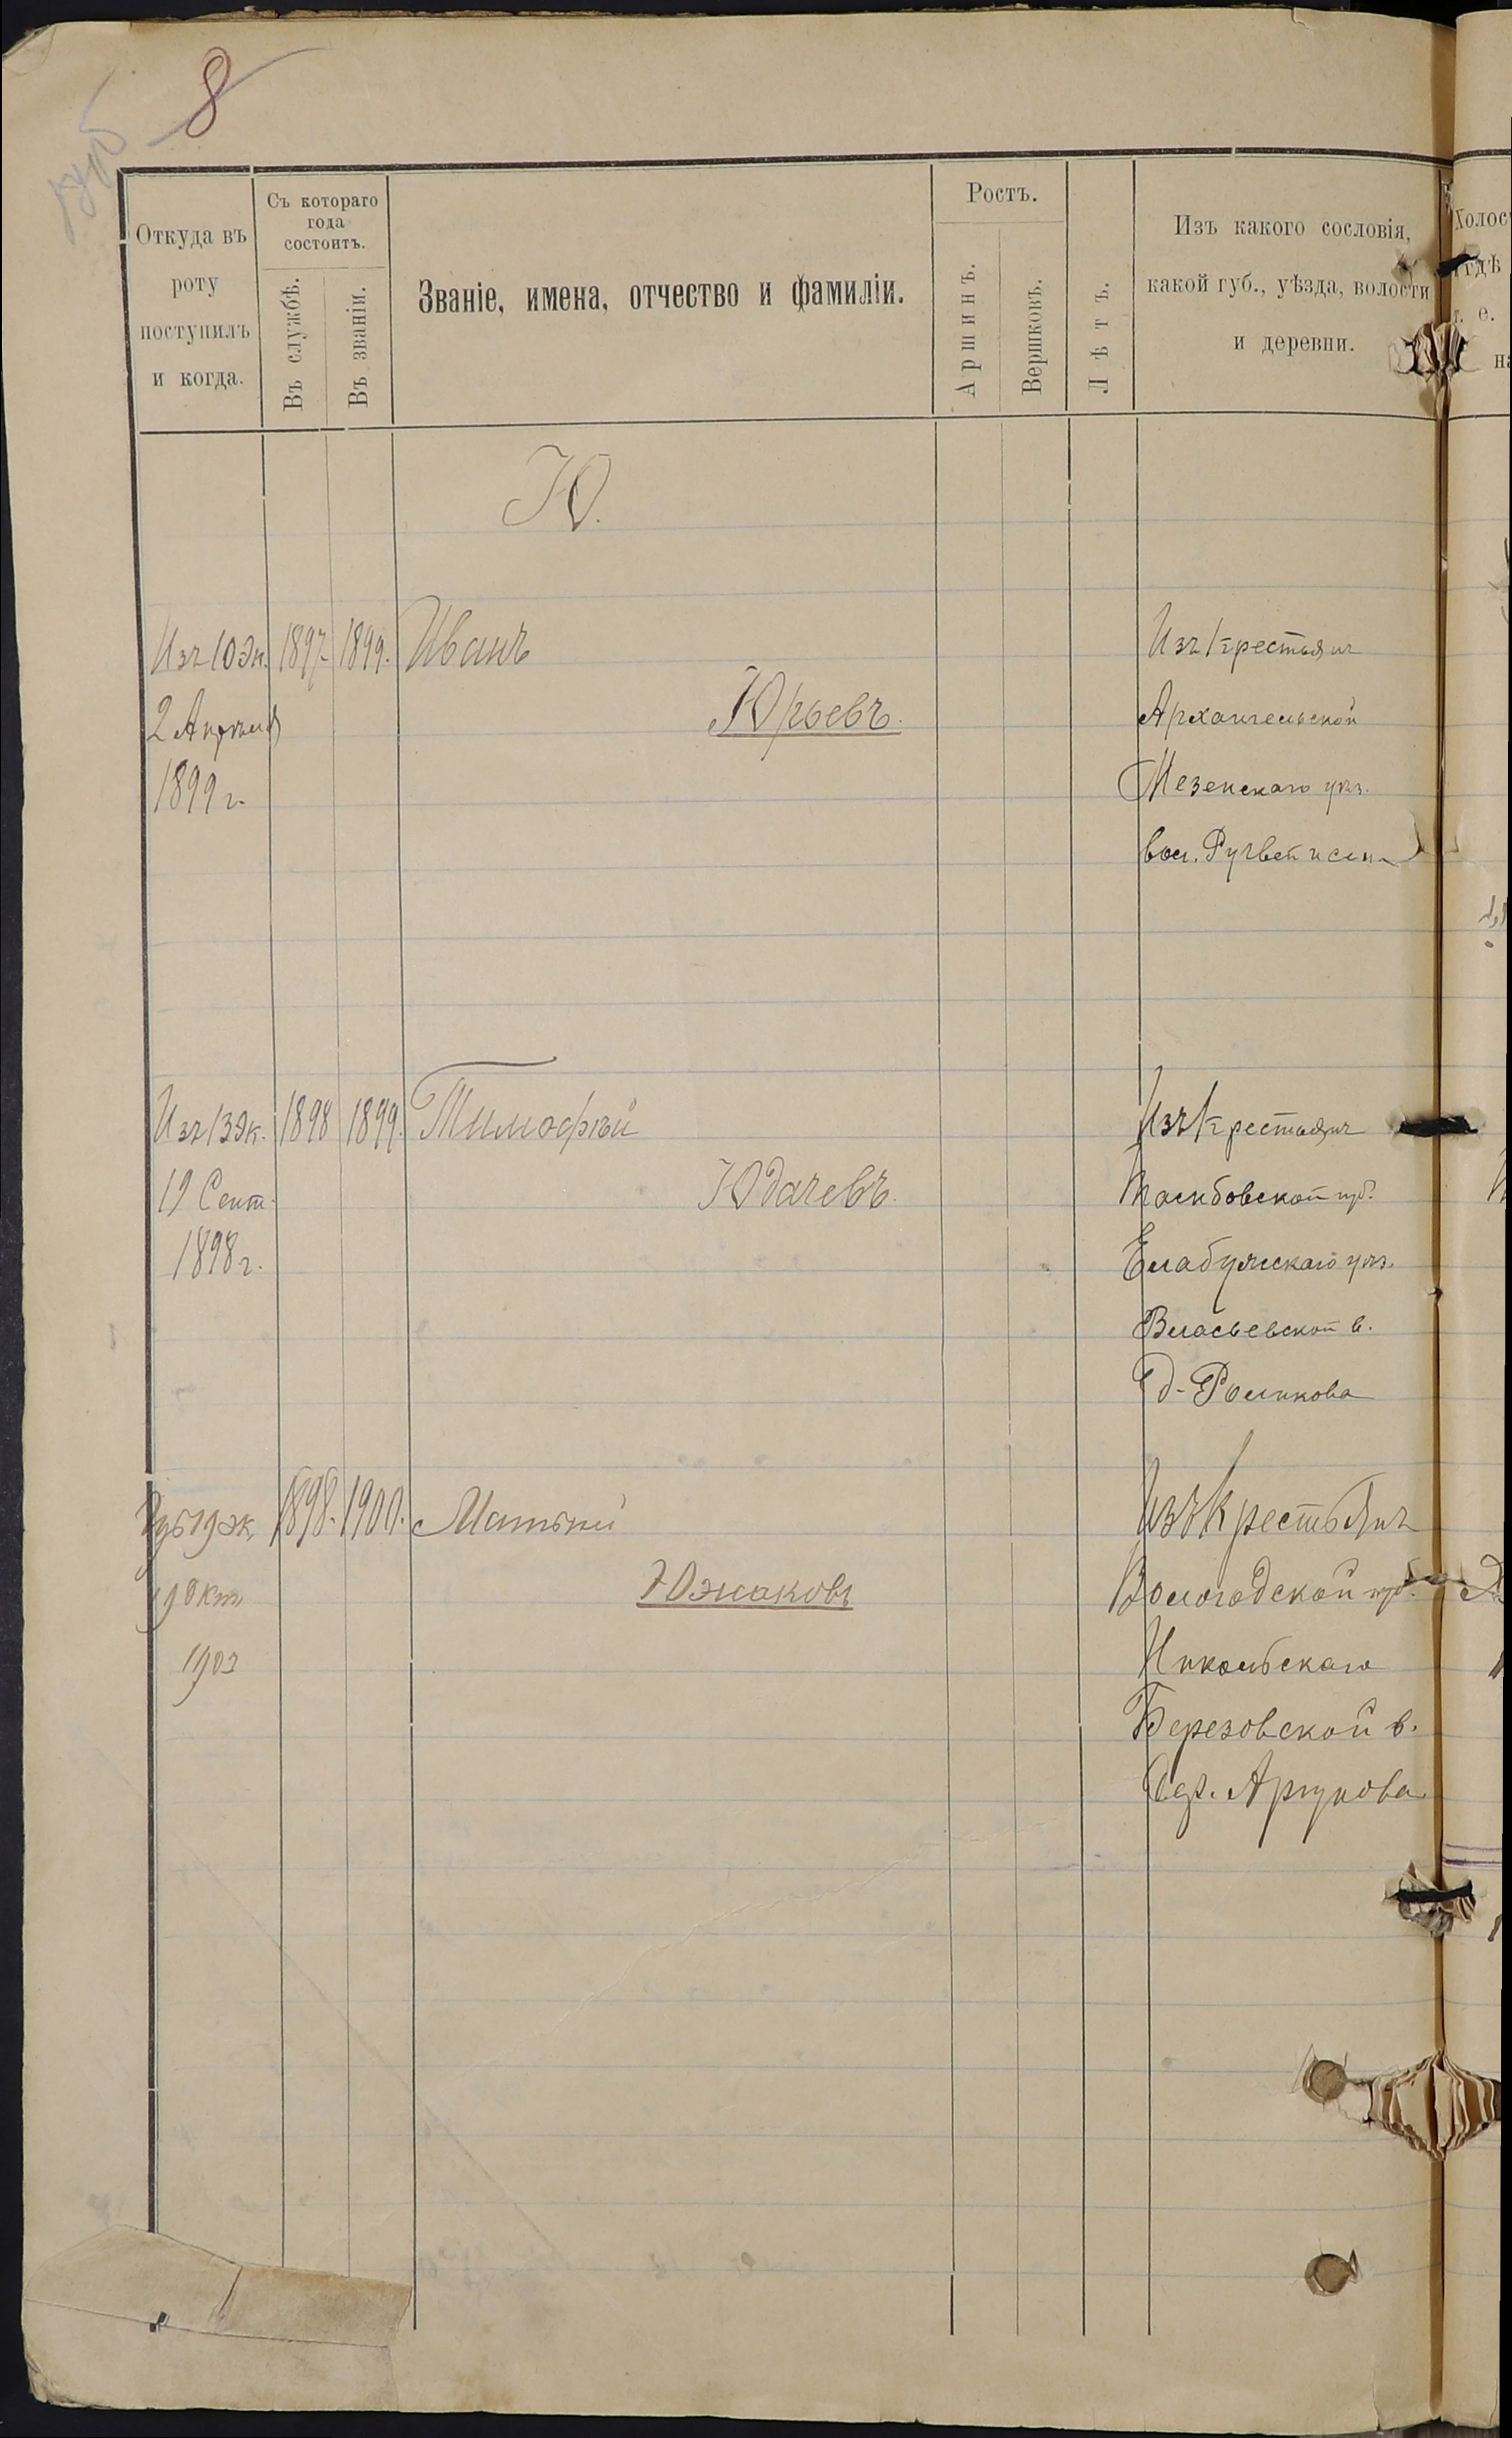 8
Откуда въ
роту
поступилъ
и когда.
Съ котораго
года
состоитъ.
Въ службѣ.
Въ званіи.
Званіе, имена, отчество и фамиліи.
Ростъ.
Аршинъ.
Вершковъ.
Лѣтъ.
Изъ какого сословія,
какой губ., уѣзда, волости
и деревни.
Холос
гдѣ
т. е.
на
Ю.
Изъ 10 Эк. 1897 1899. Иванъ Изъ Крестьянъ
2 Апрѣля Юрьевъ. Архангельской
1899 г. Мезенскаго уѣз.
вол.
Изъ 13 Эк. 1898 1899. Тимофѣй Изъ Крестьянъ
19 Сент. Юдачевъ. губ.
1898 г. Елабужскаго уѣз.
Власьевской в.
д.
19 эк. 1898. 1900. Матвѣй Изъ Крестьянъ
Окт Южаковъ Вологодской губ.
1903 Никольскаго
Березовской в.
Дер. Аргунова